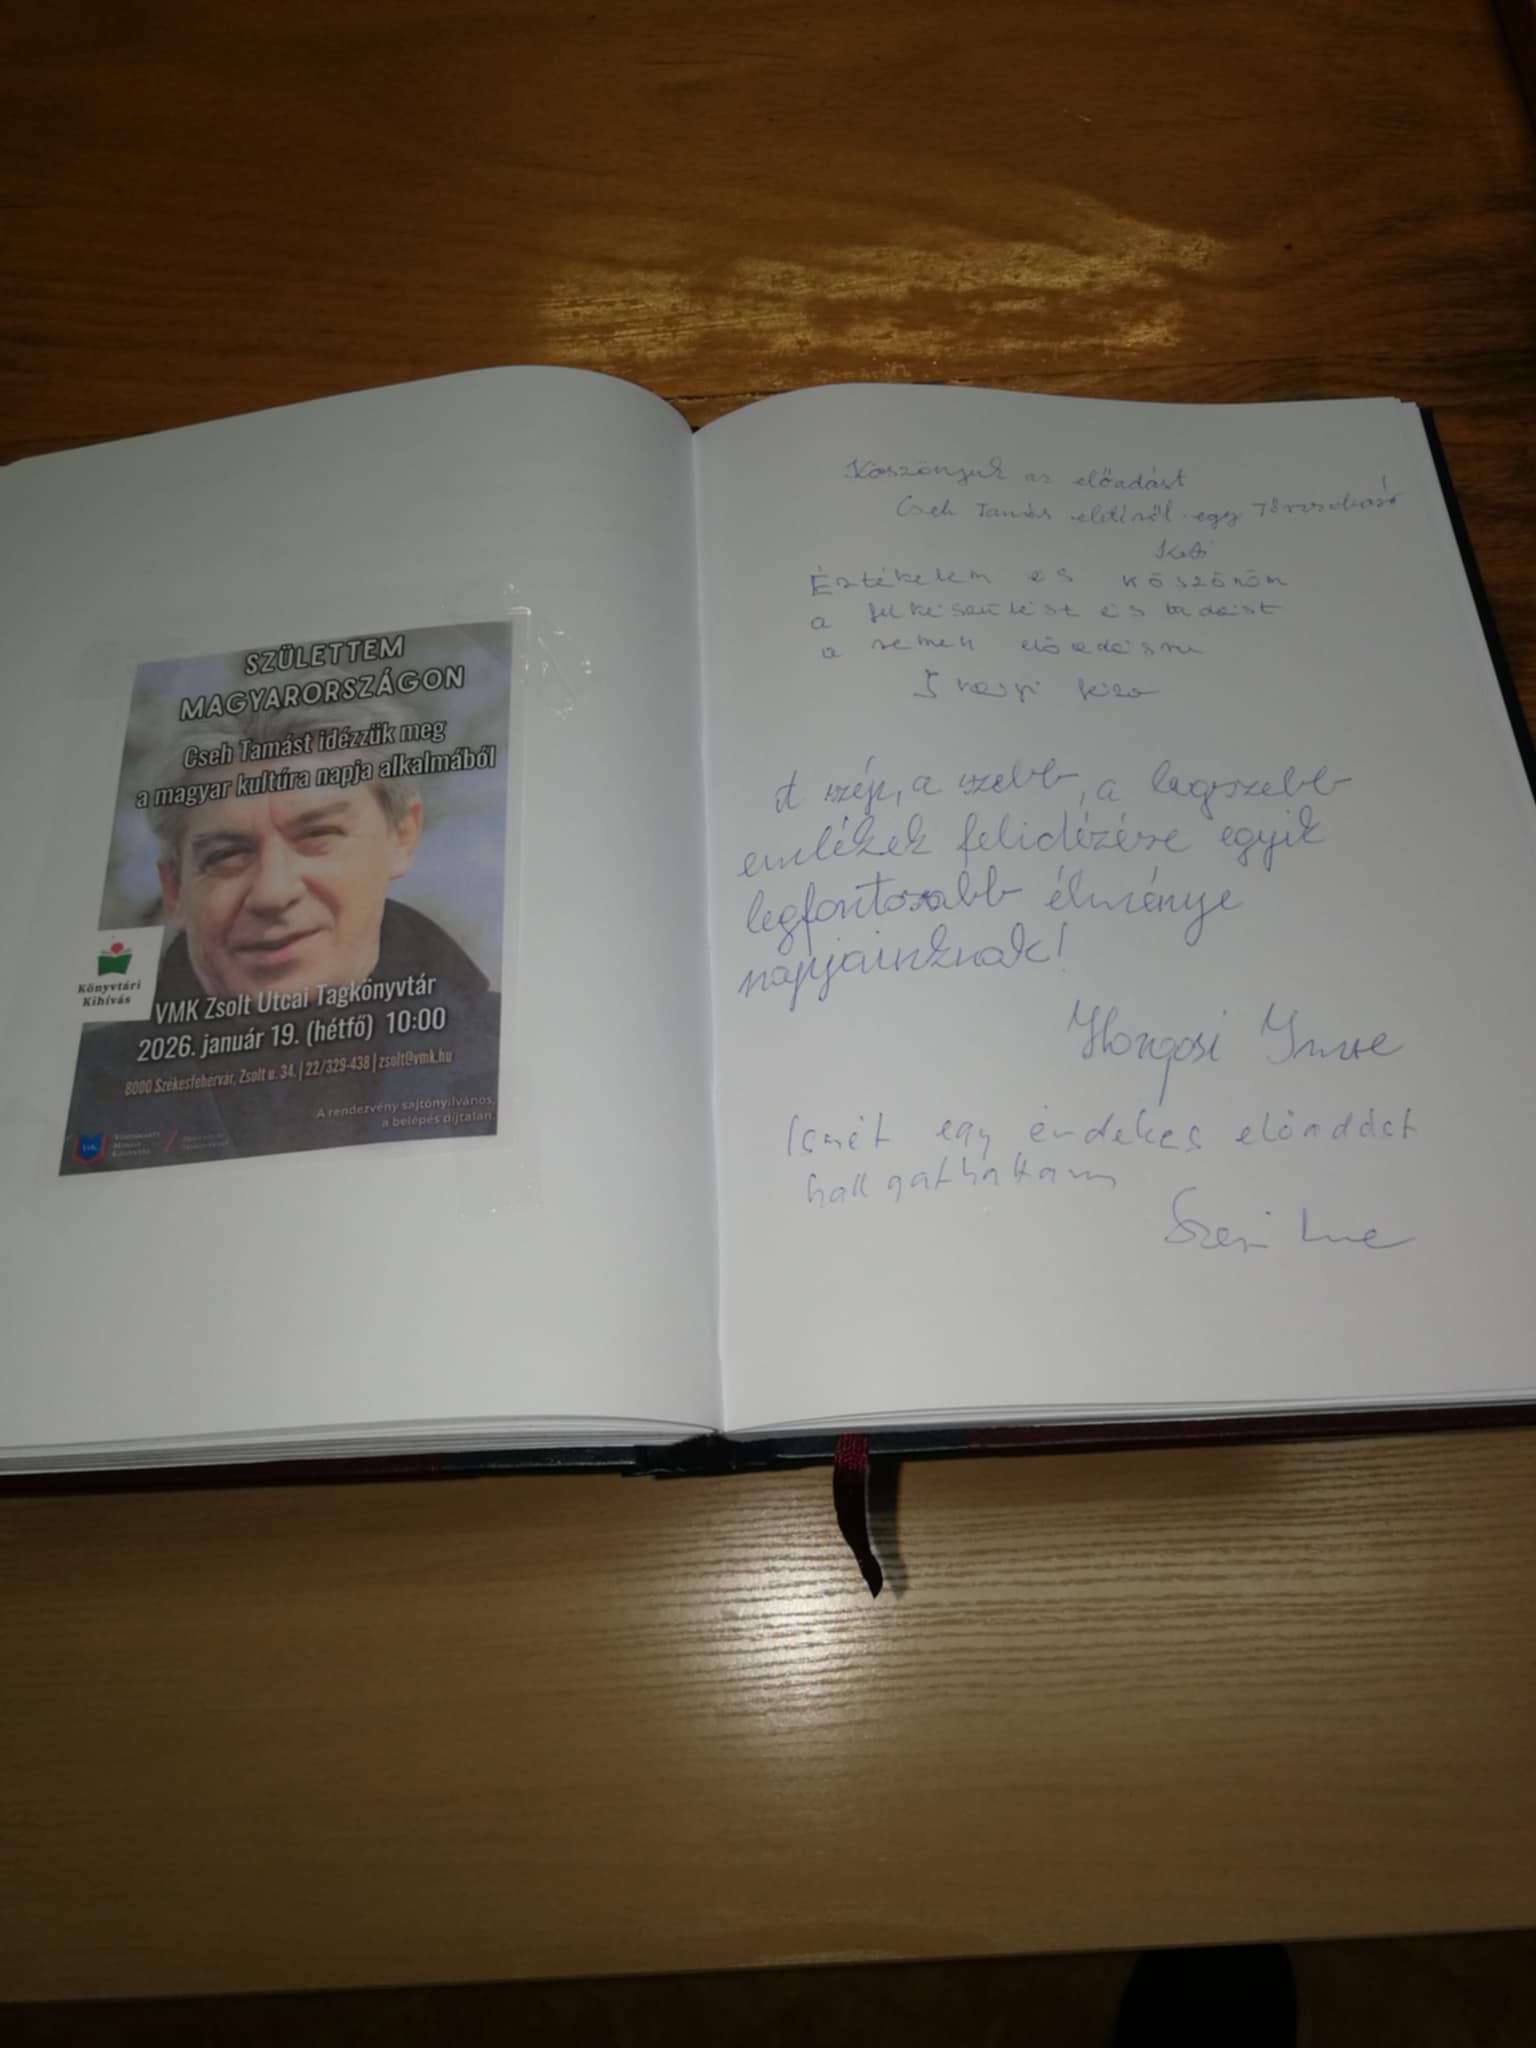 SZÜLETTEM
MAGYARORSZÁGON
Cseh Tamást idézzük meg
a magyar kultúra napja alkalmából
Könyvtári
Kihívás
VMK Zsolt Utcai Tagkönyvtár
2026. január 19. (hétfő) 10:00
8000 Székesfehérvár, Zsolt u. 34. | 22/329-438 | zsolt@vmk.hu
A rendezvény sajtónyilvános,
a belépés díjtalan.
Vörösmarty
Mihály
Könyvtár
Köszönjük az előadást
Cseh Tamás egy
Értékelem és köszönöm
a felkészülést és tudást
a remek előadásra
A szép, a szebb, a legszebb
emlékek felidézése egyik
legfontosabb élménye
napjainknak!
Imre
Ismét egy érdekes előadást
hallgathattam